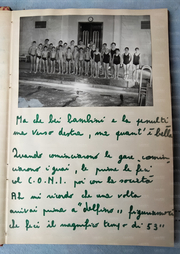 Ma che bei bambini e la penulti
ma verso destra, ma quant'è bella
Quando cominciarono le gare comin
ciarono i guai, le prime le feci
al C.O.N.I. poi con le società
Ah mi ricordo che una volta
arrivai prima a "delfino" figuriamoci
che feci il magnifico tempo di 53"